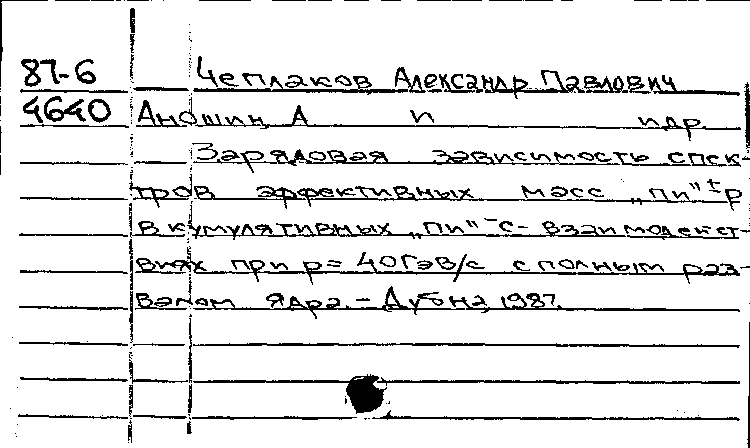 87-6 Чеплаков, Александр Павлович
4640 Аношин, А п и др.
Зарядовая зависимость спек-
тров эффективных масс „пи"±р
в кумулятивных „пи"-С- взаимодейст-
виях при р= 40ГэВ/с с полным раз-
валом ядра. - Дубна, 1987.